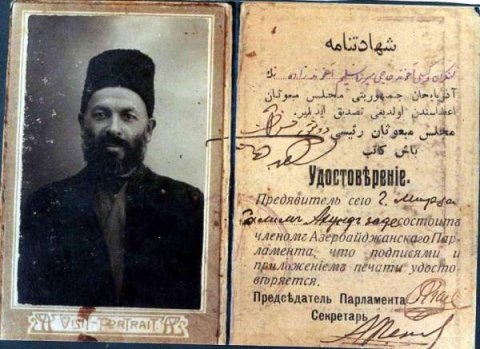 VISIT-PORTRAIT.
شهادتنامه
نك
آذربایجان جمهوریتی مجلس مبعوثان
اعضاسندن اولدیغی تصدیق ایدیلیر.
مجلس مبعوثان رئیسی
باش کاتب
Удостовѣреніе.
Предявитель сею г. Мирза
Салимъ Ахундъ заде состоитъ
членомъ Азербайджанскаго Пар-
ламента, что подписями и
приложеніемъ печати удосто-
вѣряется.
Предсѣдатель Парламента
Секретарь